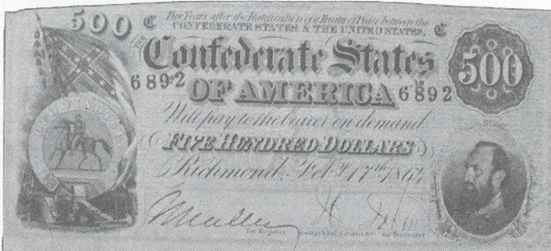 500 C Two Years after the Ratification of a Treaty of Peace between the C
CONFEDERATE STATES & THE UNITED STATES,
THE Confederate States 500
6892 OF AMERICA 6892
Will pay to the bearer on demand
FIVE HUNDRED DOLLARS
Richmond, Feby. 17th 1864
for Register for Treasurer